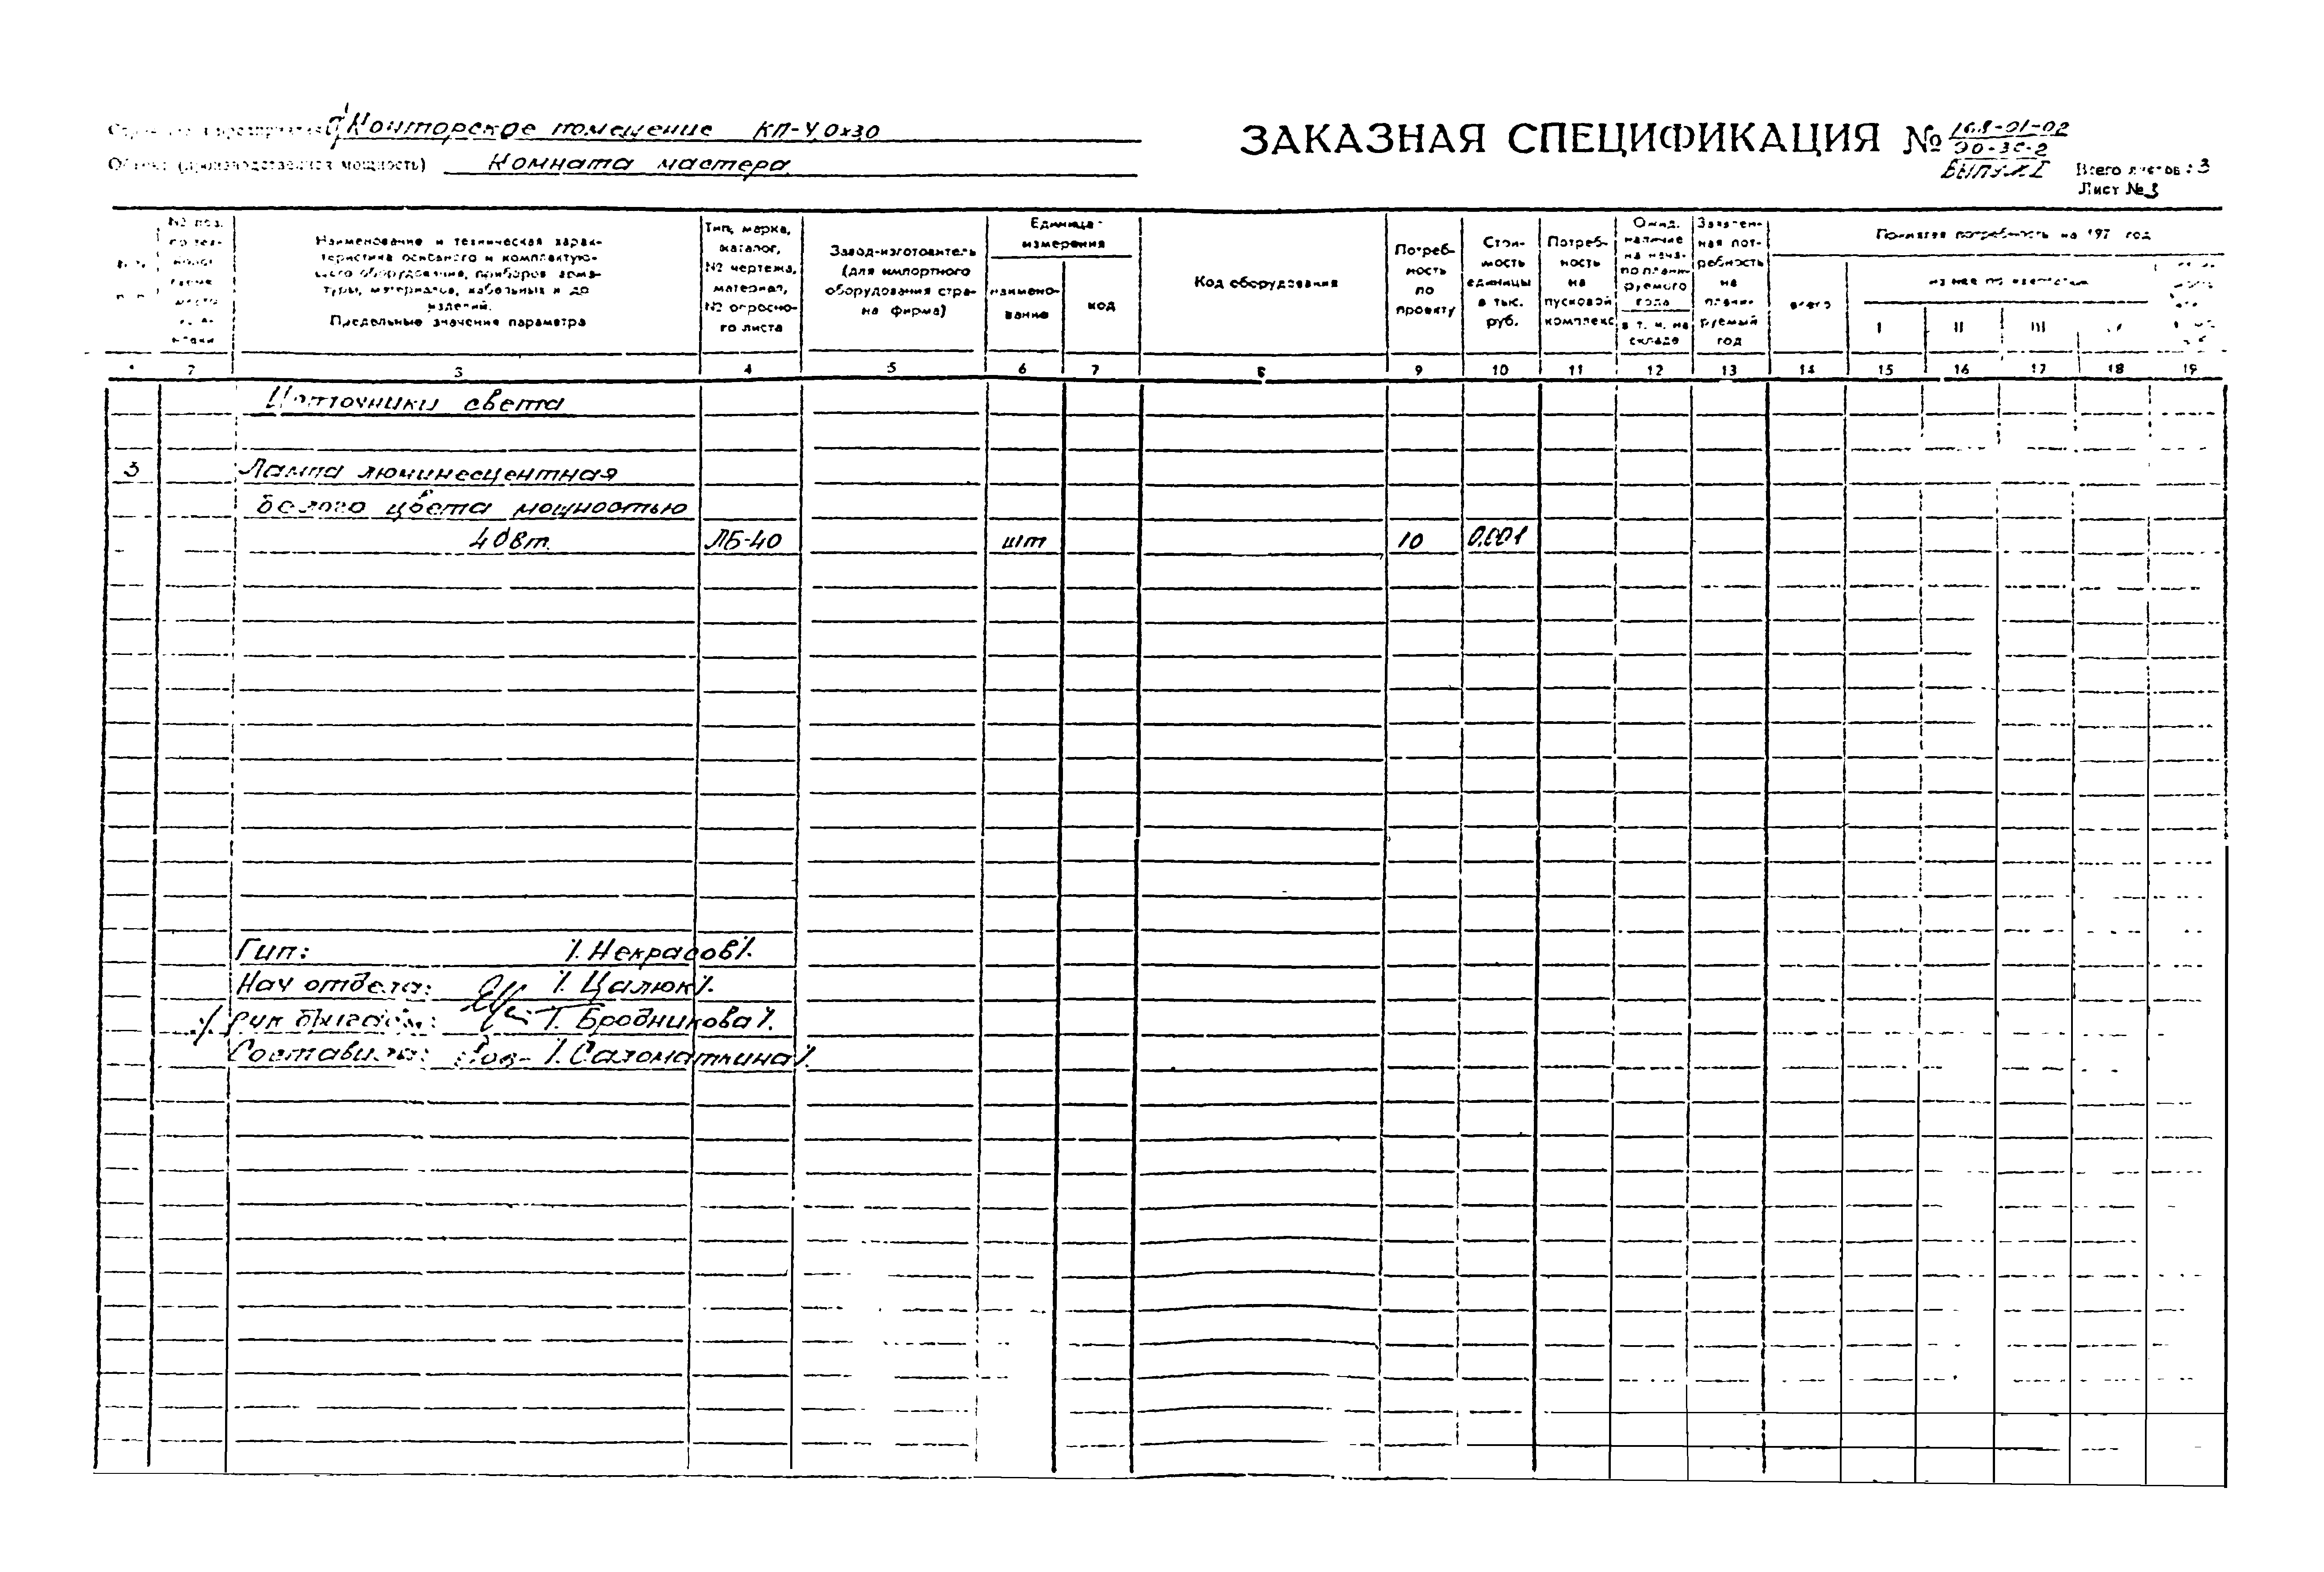 Конторское помещение КП-У,0х30
(производственная мощность) Комната мастера
ЗАКАЗНАЯ СПЕЦИФИКАЦИЯ №
168-01-02
ЭО-ЗС-2
Всего листов: 3
Лист № 3
№ поз.
Наименование и техническая харак-
теристика основного и комплектую-
щего оборудования, приборов, арма-
туры, материалов, кабельных и др
изделий.
Предельные значения параметра
Тип, марка,
каталог,
№ чертежа,
материал,
№ опросно-
го листа
Завод-изготовитель
(для импортного
оборудования стра-
на фирма)
Единица
измерения
наимено-
вание
код
Код оборудования
Потреб-
ность
по
проекту
Стои-
мость
единицы
в тыс.
руб.
Потреб-
ность
на
пусковой
комплекс
Ожид.
наличие
на нача-
ло плани-
руемого
года
в т. ч. на
складе
Заявлен-
ная пот-
ребность
на
плани-
руемый
год
Принятая потребность на 197 год
всего
из нее по кварталам
I II III IV
1 2 3 4 5 6 7 8 9 10 11 12 13 14 15 16 17 18 19
Источники света
3 Лампа люминесцентная
белого цвета мощностью
40вт. ЛБ-40 шт 10 0,001
Гип: /. Некрасов/.
Нач отдела: /. Цалюк/.
Рук бригады: /. Бродникова/.
Составила: /. Саломаткина/.